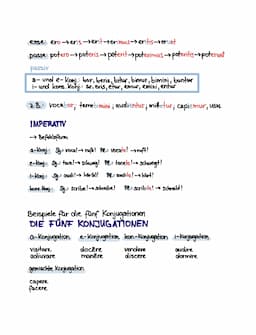 esse: ero → eris → erit → erimus → eritis → erunt
posse: potero → poteris → poterit → poterimus → poteritis → poterunt
passiv
a- und e- Konj.: bor, beris, bitur, bimur, bimini, buntur
i- und kons. Konj.: ar, eris, etur, emur, emini, entur
z.B.:
IMPERATIV
→ Befehlsform
a-Konj.: Sg.: voca! → ruf! Pl.: vocate! → ruft!
e-Konj.: Sg.: tace! → schweig! Pl.: tacete! → schweigt!
i-Konj.: Sg.: audi! → hör! Pl.: audite! → hört!
kons. Konj.: Sg.: scribe! → schreibe! Pl.: scribite! → schreibt!
Beispiele für die fünf Konjugationen
DIE FÜNF KONJUGATIONEN
a-Konjugation e-Konjugation kon-Konjugation i-Konjugation
visitare docere vendere audire
adiuvare manēre discere dormire
gemischte Konjugation
capere
facere